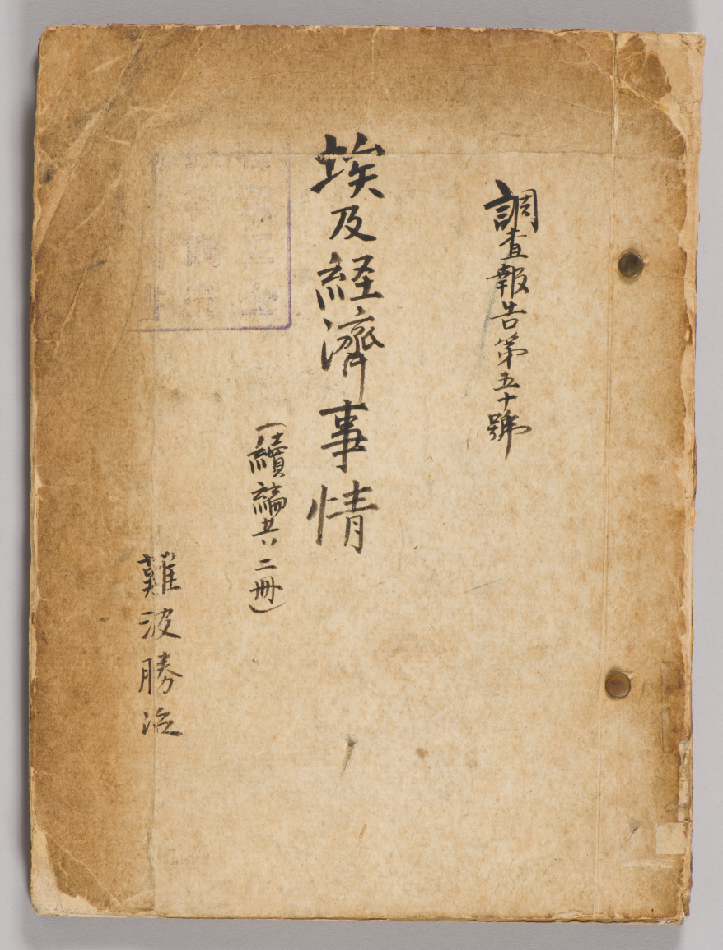 調査報告第五十號
埃及経濟事情
(續編共二冊)
難波勝治